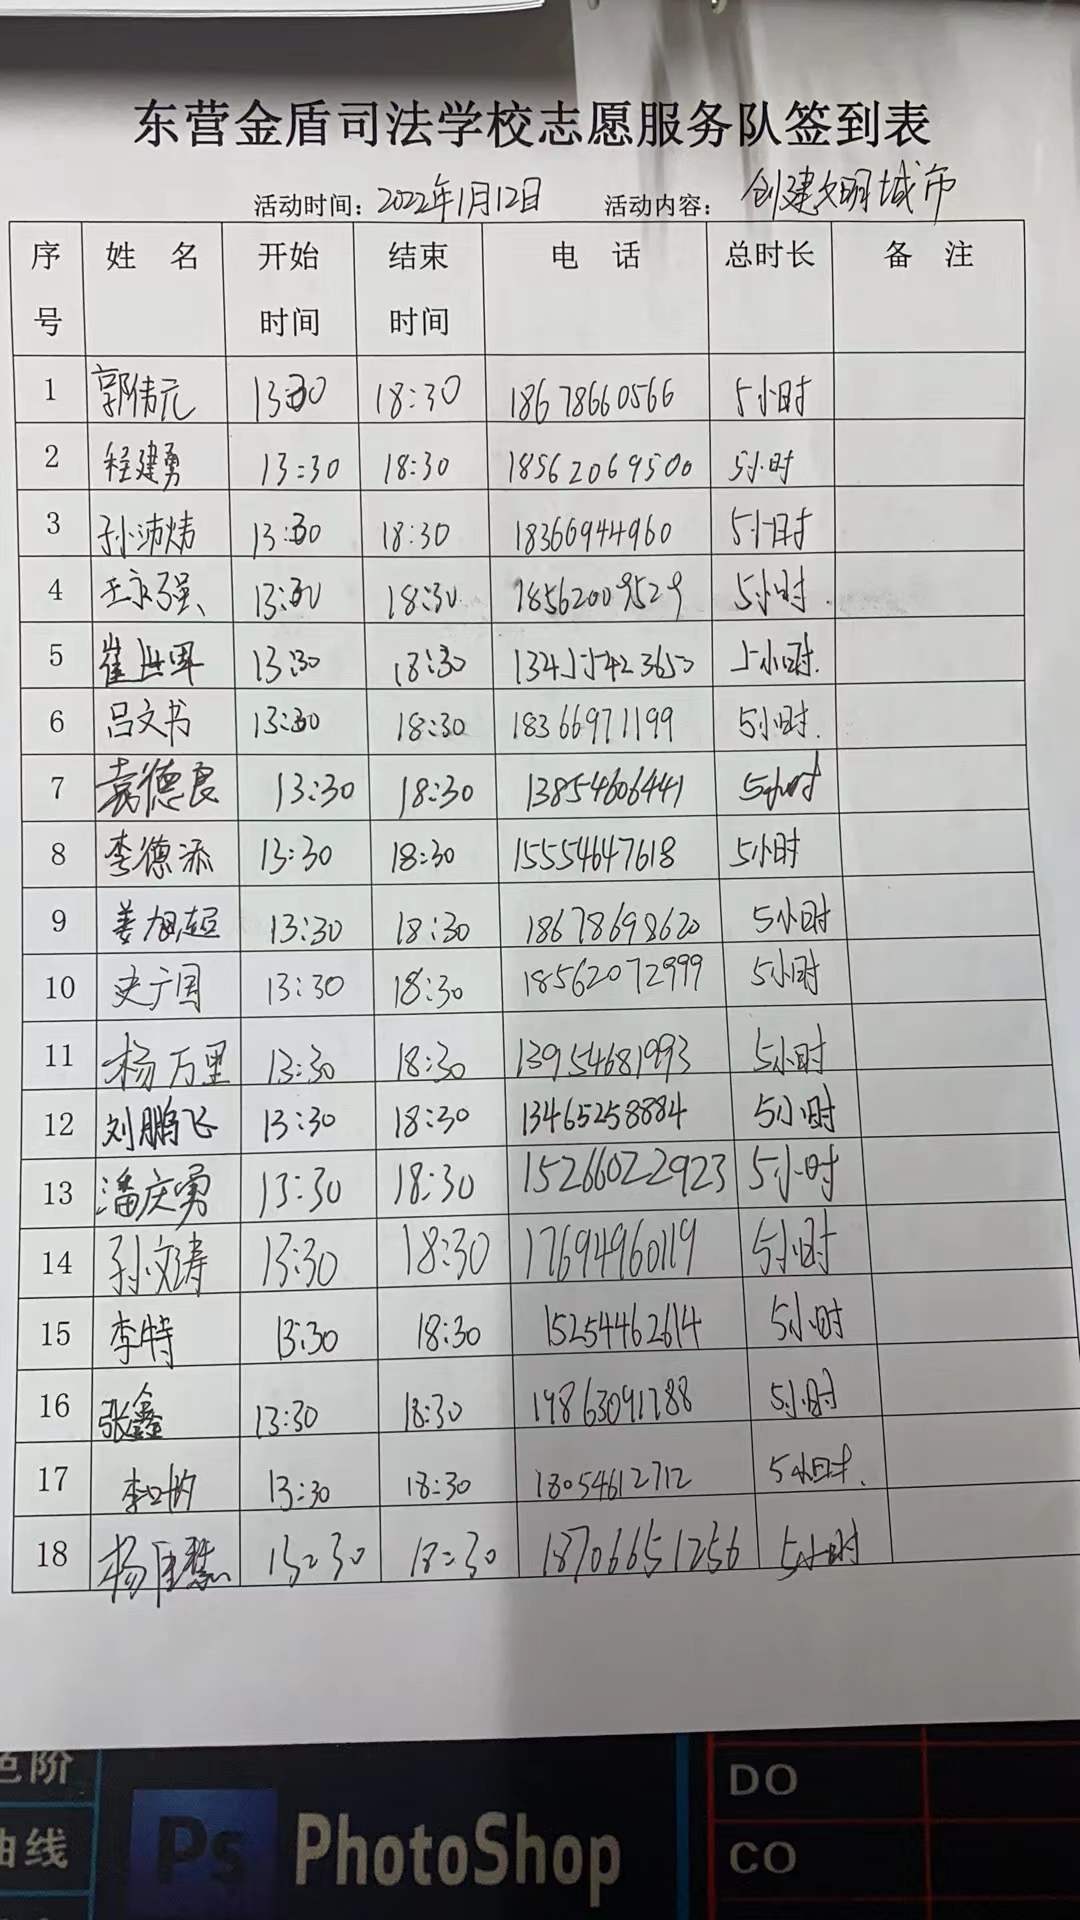 东营金盾司法学校志愿服务队签到表
活动时间：2022年1月12日 活动内容：创建文明城市
序号 姓 名 开始时间 结束时间 电 话 总时长 备 注
1 郭伟元 13:30 18:30 18678660566 5小时
2 程建勇 13:30 18:30 18562069500 5小时
3 孙沛炜 13:30 18:30 18366944960 5小时
4 王永强 13:30 18:30 18562009529 5小时.
5 崔 13:30 18:30 5小时.
6 吕文书 13:30 18:30 18366971199 5小时.
7 袁德良 13:30 18:30 13854606441 5小时
8 李德添 13:30 18:30 15554647618 5小时
9 姜旭超 13:30 18:30 18678698620 5小时
10 史广国 13:30 18:30 18562072999 5小时
11 杨万里 13:30 18:30 13954681993 5小时
12 刘鹏飞 13:30 18:30 13465258884 5小时
13 潘庆勇 13:30 18:30 15266022923 5小时
14 孙文涛 13:30 18:30 17694960119 5小时
15 李特 13:30 18:30 15254462614 5小时
16 张鑫 13:30 18:30 19863091788 5小时
17 李 13:30 18:30 18054612712 5小时.
18 杨 13:30 18:30 18706651256 5小时
色阶
曲线
Ps PhotoShop
DO
CO